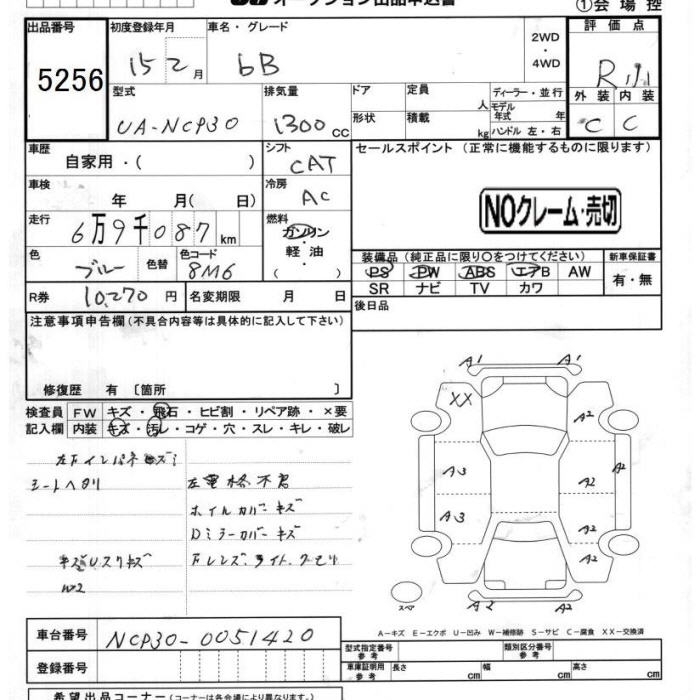 オークション出品申込書
①会場控
出品番号 5256
初度登録年月 15 2月
車名・グレード bB
2WD・4WD
評価点 R
外装 C 内装 C
型式 UA-NCP30
排気量 1300cc
ドア 定員 人
形状 積載 kg
ディーラー・並行
モデル年式 年
ハンドル 左・右
車歴 自家用・( )
シフト CAT
セールスポイント (正常に機能するものに限ります)
車検 年 月( 日)
冷房 AC
NOクレーム・売切
走行 6万9千087km
燃料 ガソリン・軽油・( )
色 ブルー 色替
色コード 8M6
装備品(純正品に限り○をつけてください)
PS PW ABS エアB AW
SR ナビ TV カワ
新車保証書 有・無
R券 10,270円
名変期限 月 日
後日品
注意事項申告欄(不具合内容等は具体的に記入して下さい)
修復歴 有〔箇所 〕
検査員記入欄
FW キズ・飛石・ヒビ割・リペア跡・×要
内装 キズ・汚レ・コゲ・穴・スレ・キレ・破レ
シートヘタリ
ホイルカバーキズ
Dミラーカバーキズ
W2
A1 A1
XX A2
A3 A2 A2
A3 A2
A2 A2
スペア
A－キズ E－エクボ U－凹み W－補修跡 S－サビ C－腐食 XX－交換済
車台番号 NCP30-0051420
登録番号
型式指定番号参考
類別区分番号参考
車庫証明用参考 長さ cm 幅 cm 高さ cm
希望出品コーナー(コーナーは各会場により異なります。)